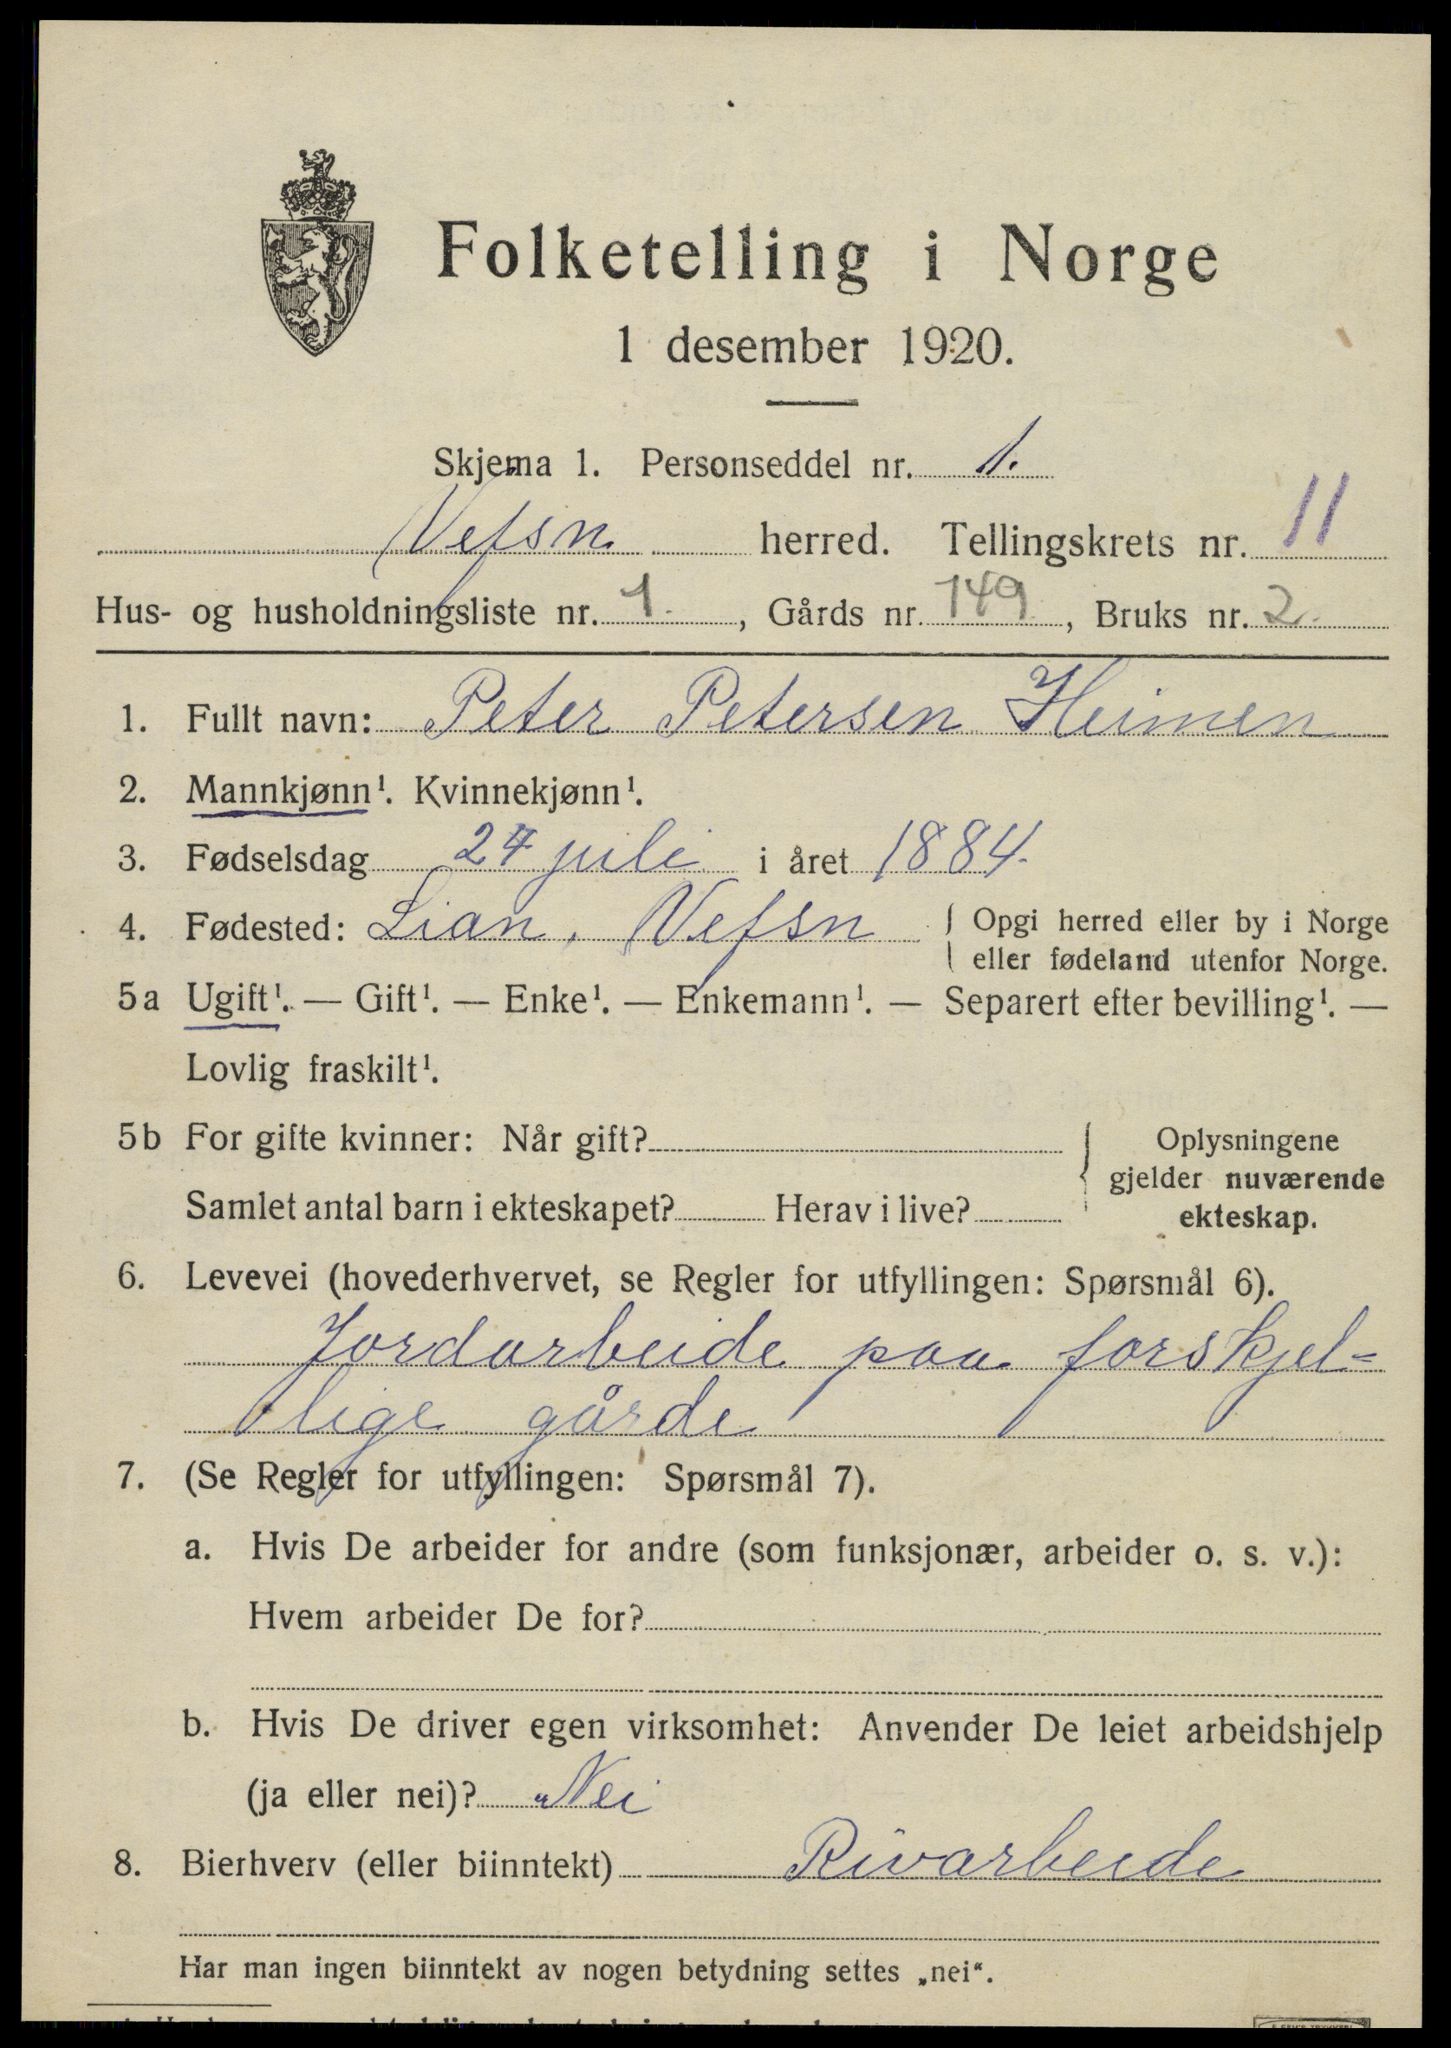 Folketelling i Norge
1 desember 1920.
Skjema 1. Personseddel nr. 1.
Vefsn herred. Tellingskrets nr. 11
Hus- og husholdningsliste nr. 1. , Gårds nr. 149 , Bruks nr. 2.
1. Fullt navn: Peter Petersen Heimen
2. Mannkjønn¹. Kvinnekjønn¹.
3. Fødselsdag 24 juli i året 1884.
4. Fødested: Lian, Vefsn { Opgi herred eller by i Norge
eller fødeland utenfor Norge.
5a Ugift¹. — Gift¹. — Enke¹. — Enkemann¹. — Separert efter bevilling¹. —
Lovlig fraskilt¹.
5b For gifte kvinner: Når gift? { Oplysningene
gjelder nuværende
Samlet antal barn i ekteskapet? Herav i live? ekteskap.
6. Levevei (hovederhvervet, se Regler for utfyllingen: Spørsmål 6).
Jordarbeide paa forskjel-
lige gårde
7. (Se Regler for utfyllingen: Spørsmål 7).
a. Hvis De arbeider for andre (som funksjonær, arbeider o. s. v.):
Hvem arbeider De for?
b. Hvis De driver egen virksomhet: Anvender De leiet arbeidshjelp
(ja eller nei)? Nei
8. Bierhverv (eller biinntekt) Rivarbeide
Har man ingen biinntekt av nogen betydning settes „nei“.